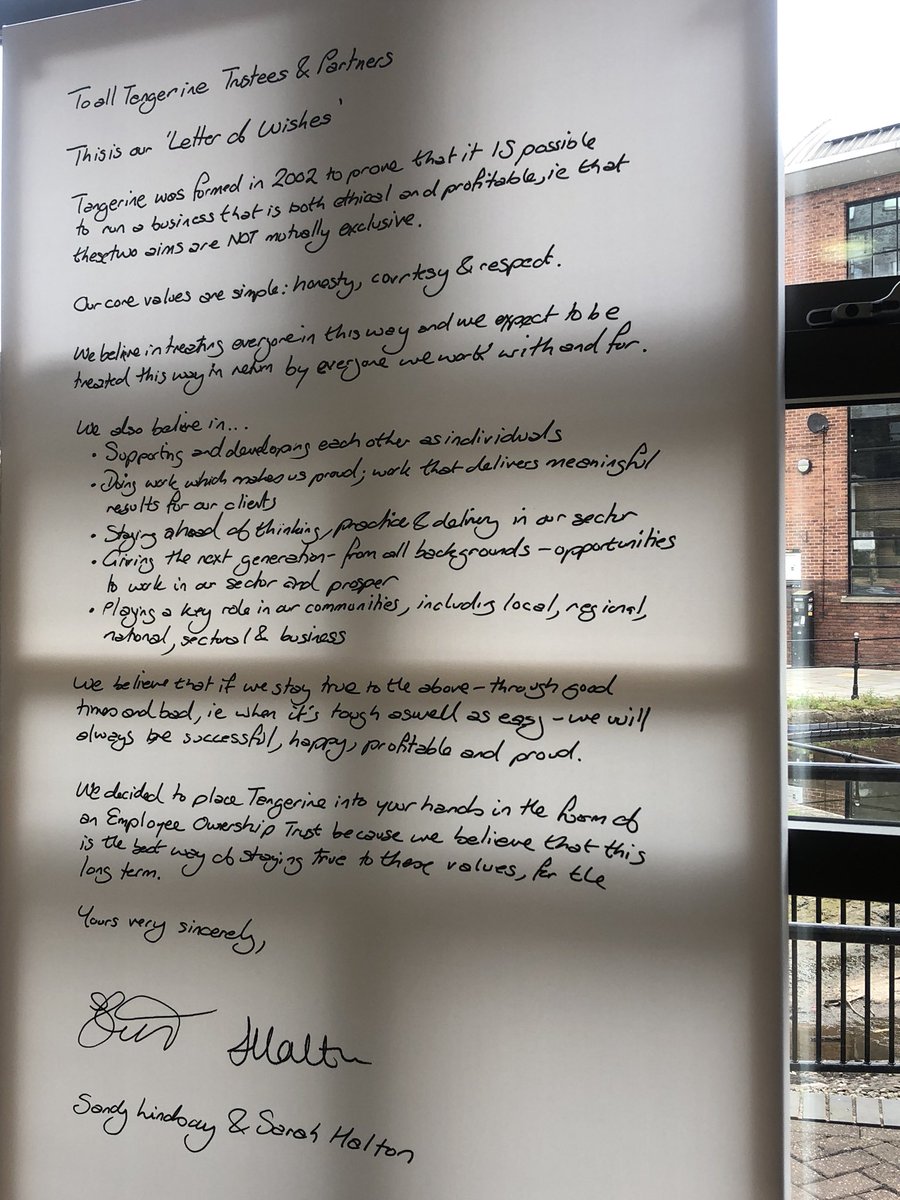 To all Tangerine Trustees & Partners
This is our 'Letter of Wishes'
Tangerine was formed in 2002 to prove that it IS possible
to run a business that is both ethical and profitable, ie that
these two aims are NOT mutually exclusive.
Our core values are simple: honesty, courtesy & respect.
We believe in treating everyone in this way and we expect to be
treated this way in return by everyone we work with and for.
We also believe in...
• Supporting and developing each other as individuals
• Doing work which makes us proud; work that delivers meaningful
results for our clients
• Staying ahead of thinking, practice & delivery in our sector
• Giving the next generation - from all backgrounds - opportunities
to work in our sector and prosper
• Playing a key role in our communities, including local, regional,
national, sectoral & business
We believe that if we stay true to the above - through good
times and bad, ie when it's tough aswell as easy - we will
always be successful, happy, profitable and proud.
We decided to place Tangerine into your hands in the form of
an Employee Owership Trust because we believe that this
is the best way of staying true to these values, for the
long term.
Yours very sincerely,
SHalton
Sandy Lindsay & Sarah Halton